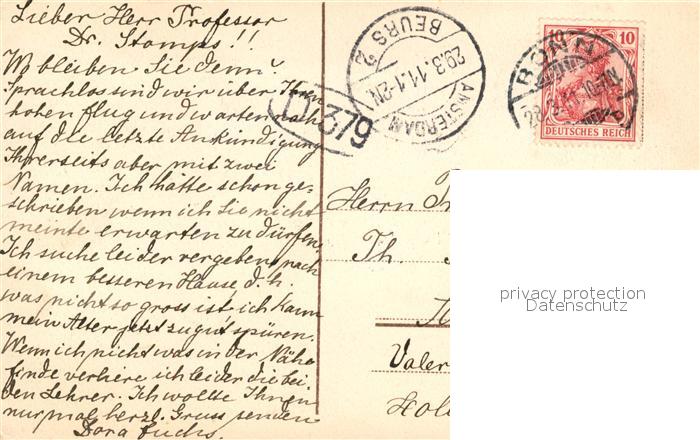 Lieber Herr Professor
Dr. Stomps!!
Wo bleiben Sie denn?
Sprachlos sind wir über Ihren
hohen flug und warten noch
auf die letzte Ankündigung
Ihrerseits aber mit zwei
Namen. Ich hätte schon ge-
schrieben wenn ich Sie nicht
meinte erwarten zu dürfen.
Ich suche leider vergebens nach
einem besseren Hause, d. h.
was nicht so gross ist, ich kann
mein Alter jetzt zu gut spüren.
Wenn ich nicht was in der Nähe
finde verliere ich leider die bei-
den Lehrer. Ich wollte Ihnen
nur mal herzl. Gruss senden
Dora Fuchs.
AMSTERDAM
29.3.11.1-2N.
BEURS 2
D 379
BONN
10 10
DEUTSCHES REICH
Herrn
Th.
Valer
Hol
privacy protection
Datenschutz